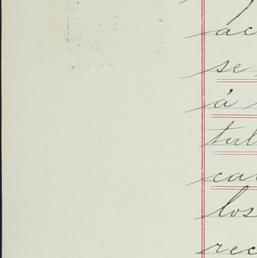 ac
se
á
tul
ca
los
rec